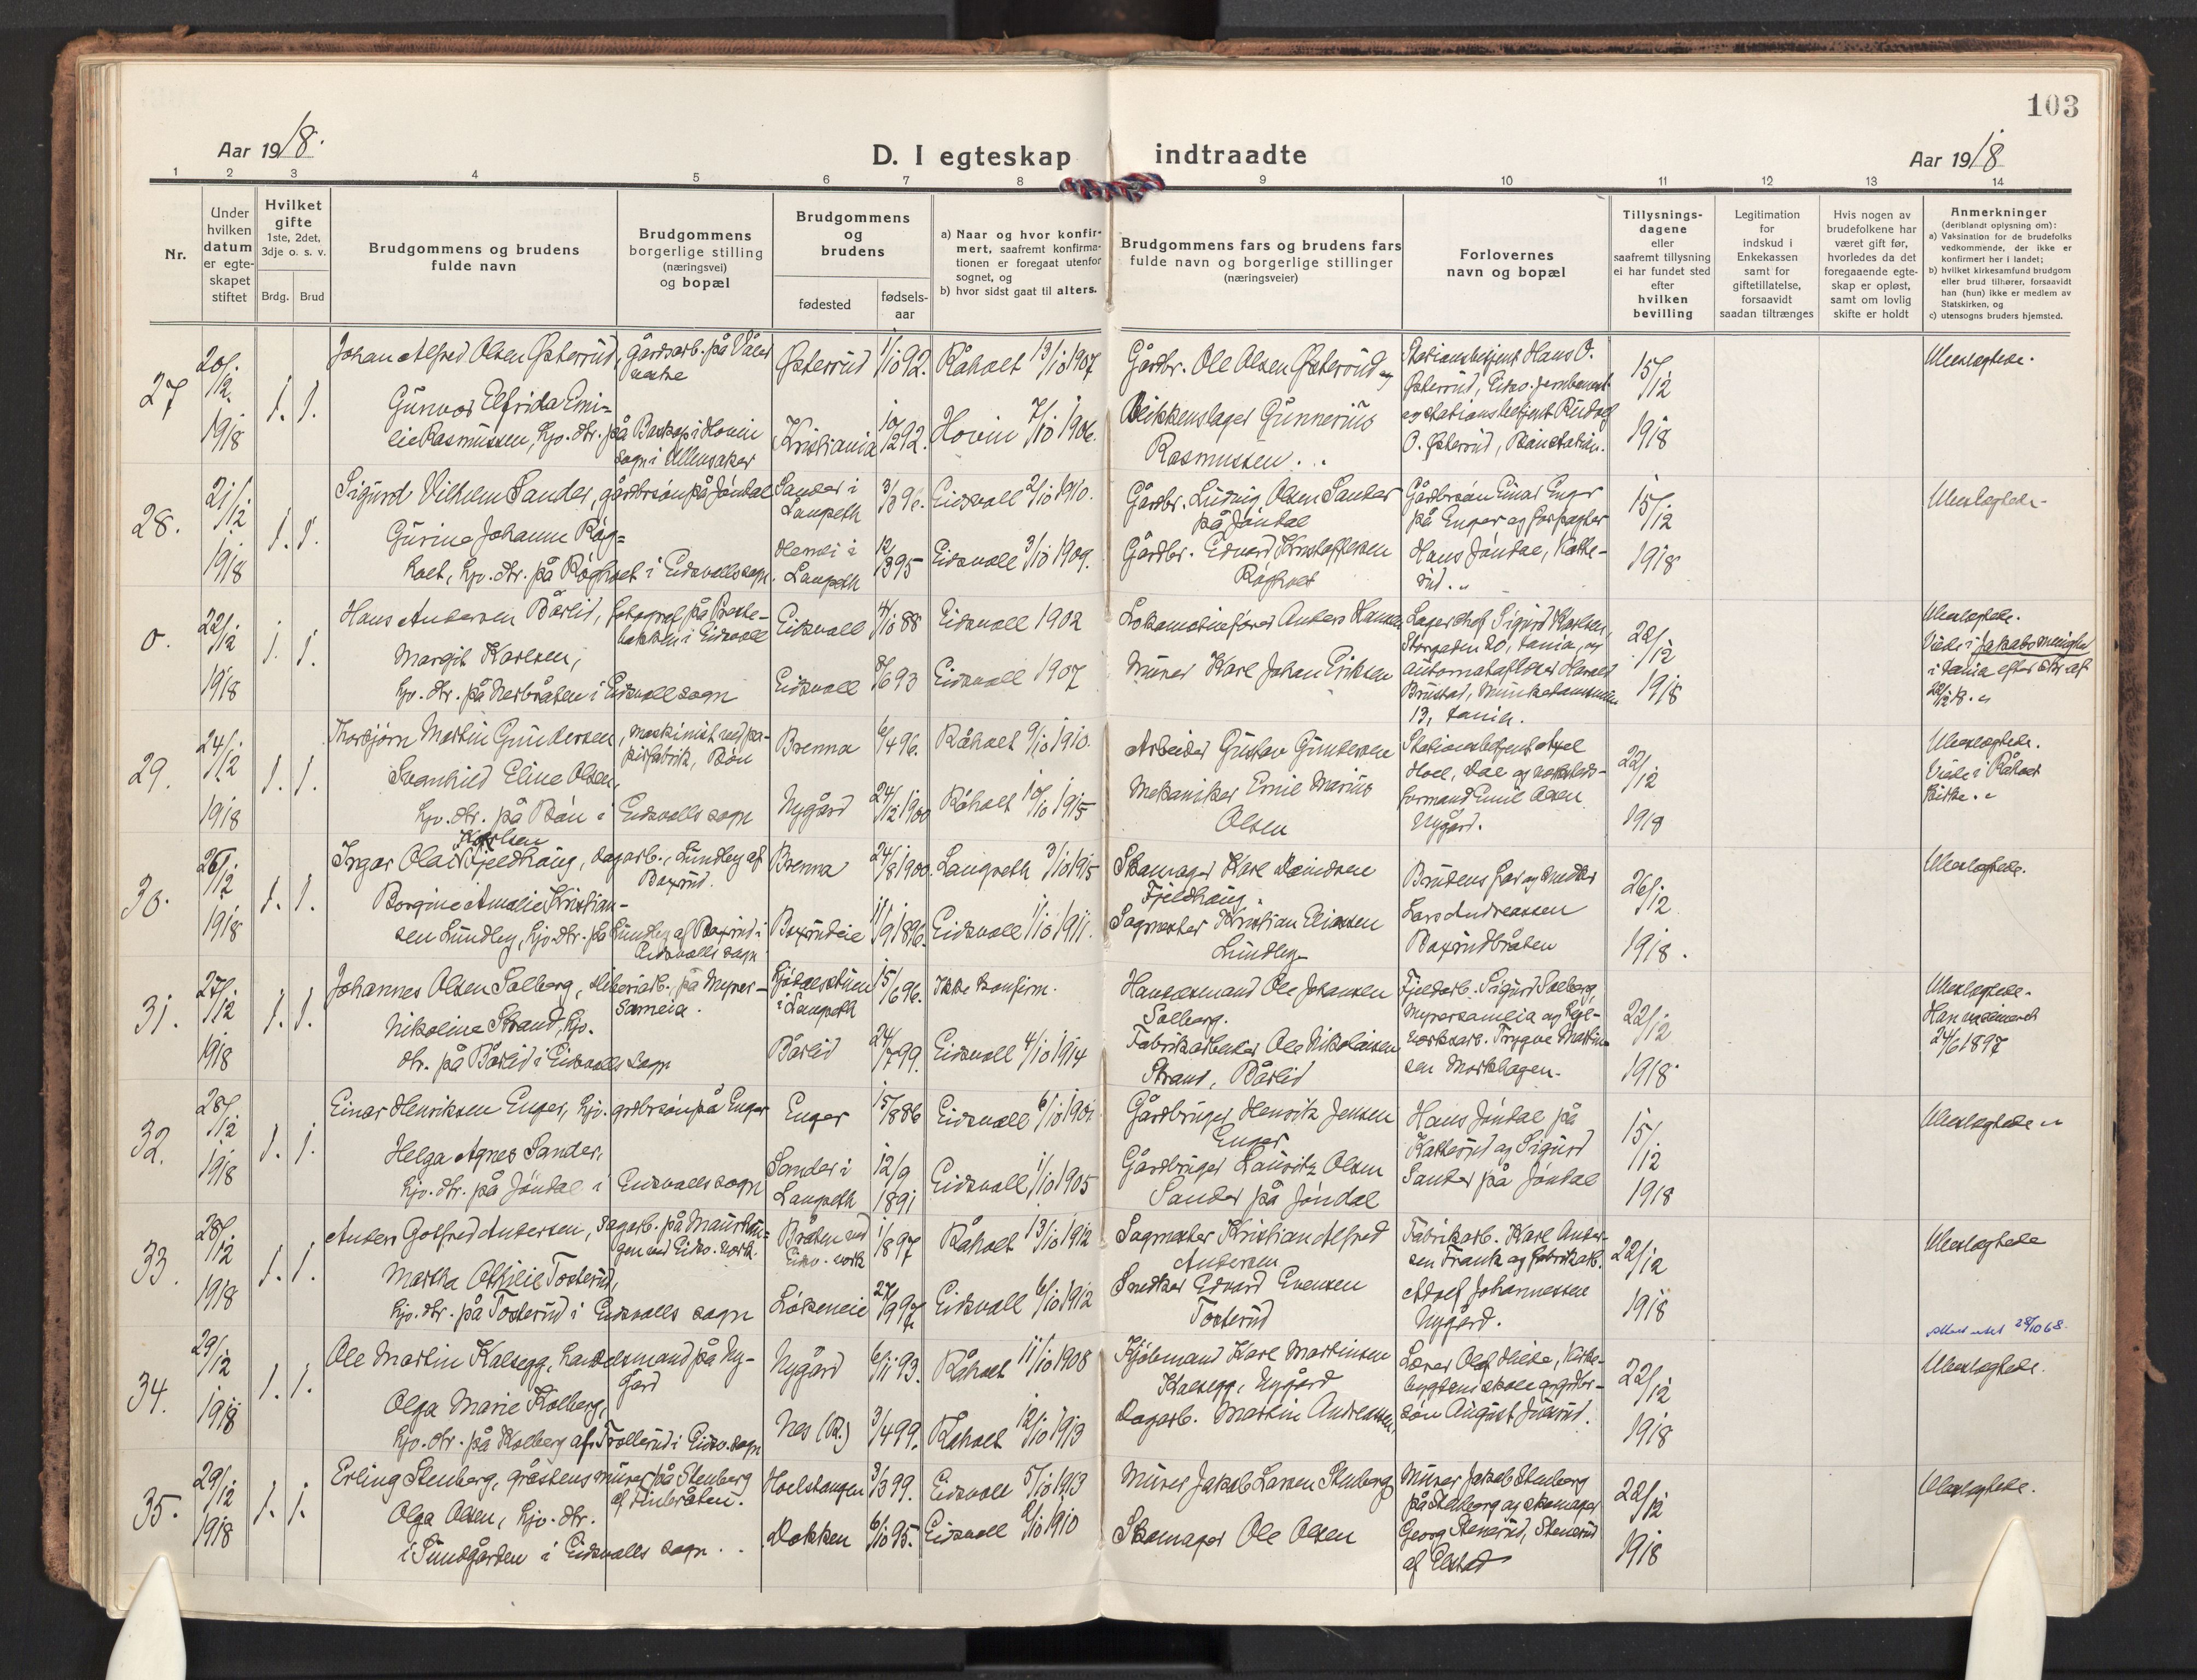 103
Aar 1918.
D. I egteskap indtraadte
Aar 1918
1 2 3 4 5 6 7 8 9 10 11 12 13 14
Nr.
Under hvilken datum er egteskapet stiftet
Hvilket gifte
1ste, 2det, 3dje o. s. v.
Brdg. Brud
Brudgommens og brudens fulde navn
Brudgommens borgerlige stilling (næringsvei) og bopæl
Brudgommens og brudens
fødested
fødsels-aar
a) Naar og hvor konfir-
mert, saafremt konfirma-
tionen er foregaat utenfor
sognet, og
b) hvor sidst gaat til alters.
Brudgommens fars og brudens fars
fulde navn og borgerlige stillinger
(næringsveier)
Forlovernes
navn og bopæl
Tillysnings-
dagene
eller
saafremt tillysning
ei har fundet sted
efter
hvilken
bevilling
Legitimation
for
indskud i
Enkekassen
samt for
giftetillatelse,
forsaavidt
saadan tiltrænges
Hvis nogen av
brudefolkene har
været gift før,
hvorledes da det
foregaaende egte-
skap er opløst,
samt om lovlig
skifte er holdt
Anmerkninger
(deriblandt oplysning om):
a) Vaksination for de brudefolks
vedkommende, der ikke er
konfirmert her i landet;
b) hvilket kirkesamfund brudgom
eller brud tilhører, forsaavidt
han (hun) ikke er medlem av
Statskirken, og
c) utensogns bruders hjemsted.
27 20/12. 1918 1. 1.
Johan Alfred Olsen Østerud, gårdsarb. på
Østerud 1/10 92. Råholt 13/10 1907
Gårdbr. Ole Olsen Østerud og
Stationsbetjent Hans O.
Østerud, Eidsv.
15/12 1918
Ubeslegtede.
Gunvor Elfrida Emi-
lie Rasmussen, hjv. dtr. på Bakop i Hovin
sogn i Ullensaker
Kristiania 10/2 92. Hovin 7/10 1906.
Blikkenslager Gunnerius
Rasmussen.
og stationsbetjent Rudolf
O. Østerud, Bøn station.
28. 21/12 1918 1. 1.
Sigurd Vilhelm Sander, gårdbrsøn på Jøndal
Sander i
Langseth
3/3 96. Eidsvoll 2/10 1910.
Gårdbr. Ludvig Olsen Sander
på Jøndal
Gårdbrsøn Einar Enger
på Enger og forpagter
Hans Jøndal, Katte-
rud.
15/12 1918
Ubeslegtede.
Gurine Johanne Røg-
holt, hjv. dtr. på Røgholt i Eidsvolls sogn.
Langseth 12/3 95 Eidsvoll 3/10 1909.
Gårdbr. Edvard Kristoffersen
Røgholt
0. 22/12 1918 1. 1.
Hans Andersen Bårlid, fotograf på Preste-
bakken i Eidsvoll
Eidsvoll 4/10 88 Eidsvoll 1902
Lokomotivfører Anders Hansen
Lagerchef Sigurd Karlsen,
Storgaten 20,
automatafløser Harald
Brustad,
13,
22/12 1918
Ubeslegtede.
Viede i Jakobs menighet
Margit Karlsen,
hjv. dtr. på Nerbråten i Eidsvoll sogn
Eidsvoll 8/6 93 Eidsvoll 1907
Murer Karl Johan Eriksen
29. 24/12 1918 1. 1.
Thorbjørn Martin Gundersen, maskinist ved pa-
pirfabrik, Bøn
Brenna 6/4 96. Råholt 9/10 1910.
Arbeider Gustav Gundersen
Stationsbetjent Axel
Hoel, Dal og verksteds-
formand Emil Olsen
Nygård.
22/12 1918
Ubeslegtede.
Viede i Råholt
kirke.
Svanhild Eline Olsen,
hjv. dtr. på Bøn i Eidsvolls sogn
Nygård 24/12 1900 Råholt 10/10 1915
Mekaniker Emil Marius
Olsen
30. 26/12 1918 1. 1.
Karlsen
Ingar Olai Fjeldhaug, dagarb., Lundby af
Boxrud.
Brenna 24/8 1900. Langseth 3/10 1915
Skomager Karl Davidsen
Fjeldhaug.
Brudens far og snedker
Lars Andreassen
Boxrudbråten
26/12 1918.
Ubeslegtede.
Borgine Amalie Kristian-
sen Lundby, hjv. dtr. på Lundby af Boxrud i
Eidsvolls sogn
Boxrudeie 11/9 1896. Eidsvoll 1/10 1911.
Sagmester Kristian Eliassen
Lundby
31. 27/12 1918 1. 1.
Johannes Olsen Solberg, sliberiarb., på Myrer-
sameia.
i Langseth
15/6 96. Ikke konfirm.
Handelsmand Ole Johansen
Solberg.
Fjeldarb. Sigurd Solberg,
Myrersameia og
Trygve Martin-
sen Morkhagen.
22/12 1918
Ubeslegtede.
Han
24/6 1897
Nikoline Strand, hjv.
dtr. på Bårlid i Eidsvolls sogn
Bårlid 24/7 99. Eidsvoll 4/10 1914
Fabrikarbeider Ole Nikolaisen
Strand, Bårlid
32. 28/12 1918 1. 1.
Einar Henriksen Enger, hjv. grdbrsøn på Enger
Enger 15/8 86 Eidsvoll 6/10 1901
Gårdbruger Henrik Jensen
Enger
Hans Jøndal på
Katterud og Sigurd
Sander på Jøndal
15/12 1918
Ubeslegtede
Helga Agnes Sander,
hjv. dtr. på Jøndal i Eidsvolls sogn
Sander i
Langseth
12/9 1891 Eidsvoll 1/10 1905
Gårdbruger Lauritz Olsen
Sander på Jøndal
33. 28/12 1918 1. 1.
Anders Gotfred Andersen, sagarb. på
gen ved Eidsv. verk.
Bråten ved
Eidsv. verk
1/8 97 Råholt 13/10 1912
Sagmester Kristian Alfred
Andersen
Fabrikarb. Karl Ander-
sen Frank og fabrikarb.
Adolf Johannessen
Nygård.
22/12 1918
Ubeslegtede
Martha Othilie Tosterud,
hjv. dtr. på Tosterud i Eidsvolls sogn
Løkeneie 27/9 97 Eidsvoll 6/10 1912
Snedker Edvard Evensen
Tosterud
28/10 68.
34. 29/12 1918 1. 1.
Ole Martin Kalsegg, handelsmand på Ny-
gård
Nygård 6/11 93. Råholt 11/10 1908
Kjøbmand Karl Martinsen
Kalsegg, Nygård
Lærer Olaf
bygdens skole og grdbr-
søn August
22/12 1918
Ubeslegtede.
Olga Marie Kolberg,
hjv. dtr. på Kolberg af Trollerud i Eidsv. sogn
Nes (R.) 3/4 99. Råholt 12/10 1913
Dagarb. Martin Andreassen,
35. 29/12 1918 1. 1.
Erling Stenberg, gråstensmurer på Stenberg
af
Hoelstangen 3/3 99. Eidsvoll 5/10 1913
Murer Jakob Larsen Stenberg
Murer Jakob Stenberg
på Stenberg og skomager
Georg Stenerud, Stenerud
af Elstad
22/12 1918
Ubeslegtede.
Olga Olsen, hjv. dtr.
i Sundgården i Eidsvolls sogn.
Dokken 6/10 95. Eidsvoll 2/10 1910
Skomager Ole Olsen